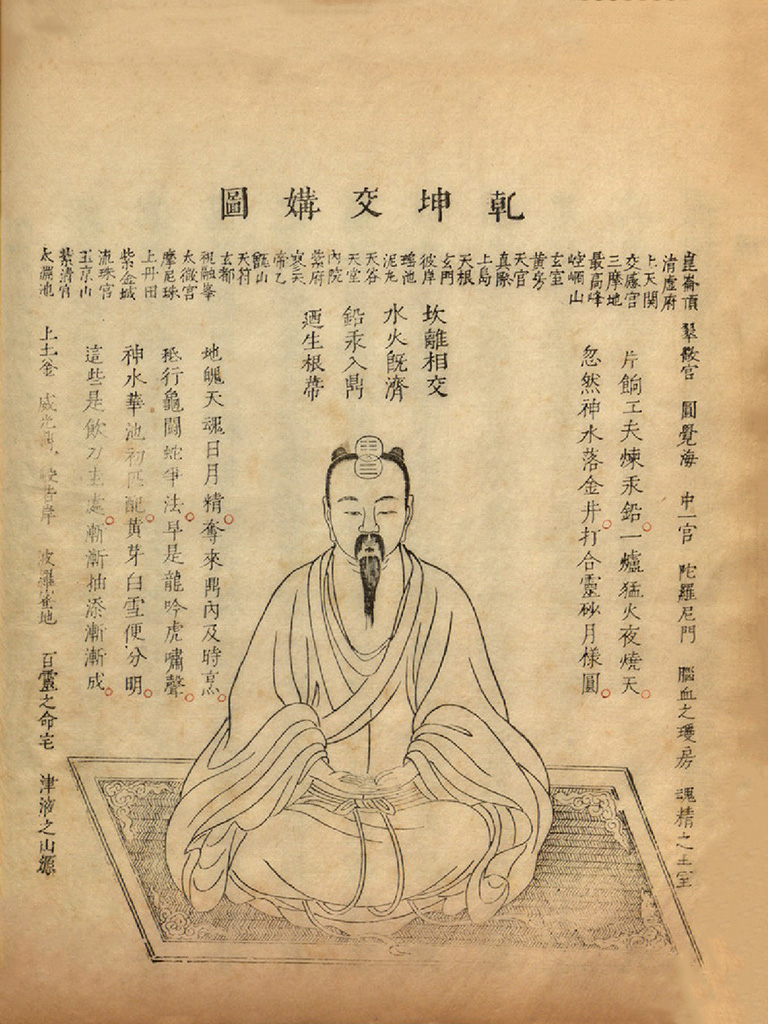 乾坤交媾圖
崑崙頂 翠微宮 圓覺海 中一宮 陀羅尼門 腦血之瓊房 魂精之玉室
清虛府
上天關
交感宮
三摩地
最高峰
崆峒山
玄室
黃房
天宮
真際
上島
天根
玄門
彼岸
瑤池
泥丸
天谷
天堂
內院
紫府
寥天
帝乙
甑山
天符
玄都
祝融峯
太微宮
摩尼珠
上丹田
紫金城
流珠宮
玉京山
紫清宮
太淵池 上土釜 威光鼎 般若岸 波羅蜜地 百靈之命宅 津液之山源
片餉工夫煉汞鉛。一爐猛火夜燒天。
忽然神水落金井。打合靈砂月樣圓。
坎離相交
水火既濟
鉛汞入鼎
迺生根蒂
地魄天魂日月精。奪來鼎內及時烹。
秪行龜鬪蛇爭法。早是龍吟虎嘯聲。
神水華池初匹配。黃芽白雪便分明。
這些是飲刀圭處。漸漸抽添漸漸成。